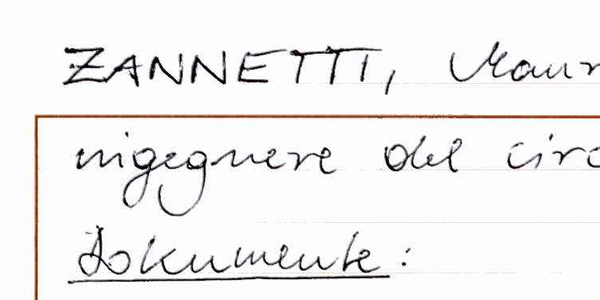 ZANNETTI, Maur
ingegnere del circ
Dokumente: